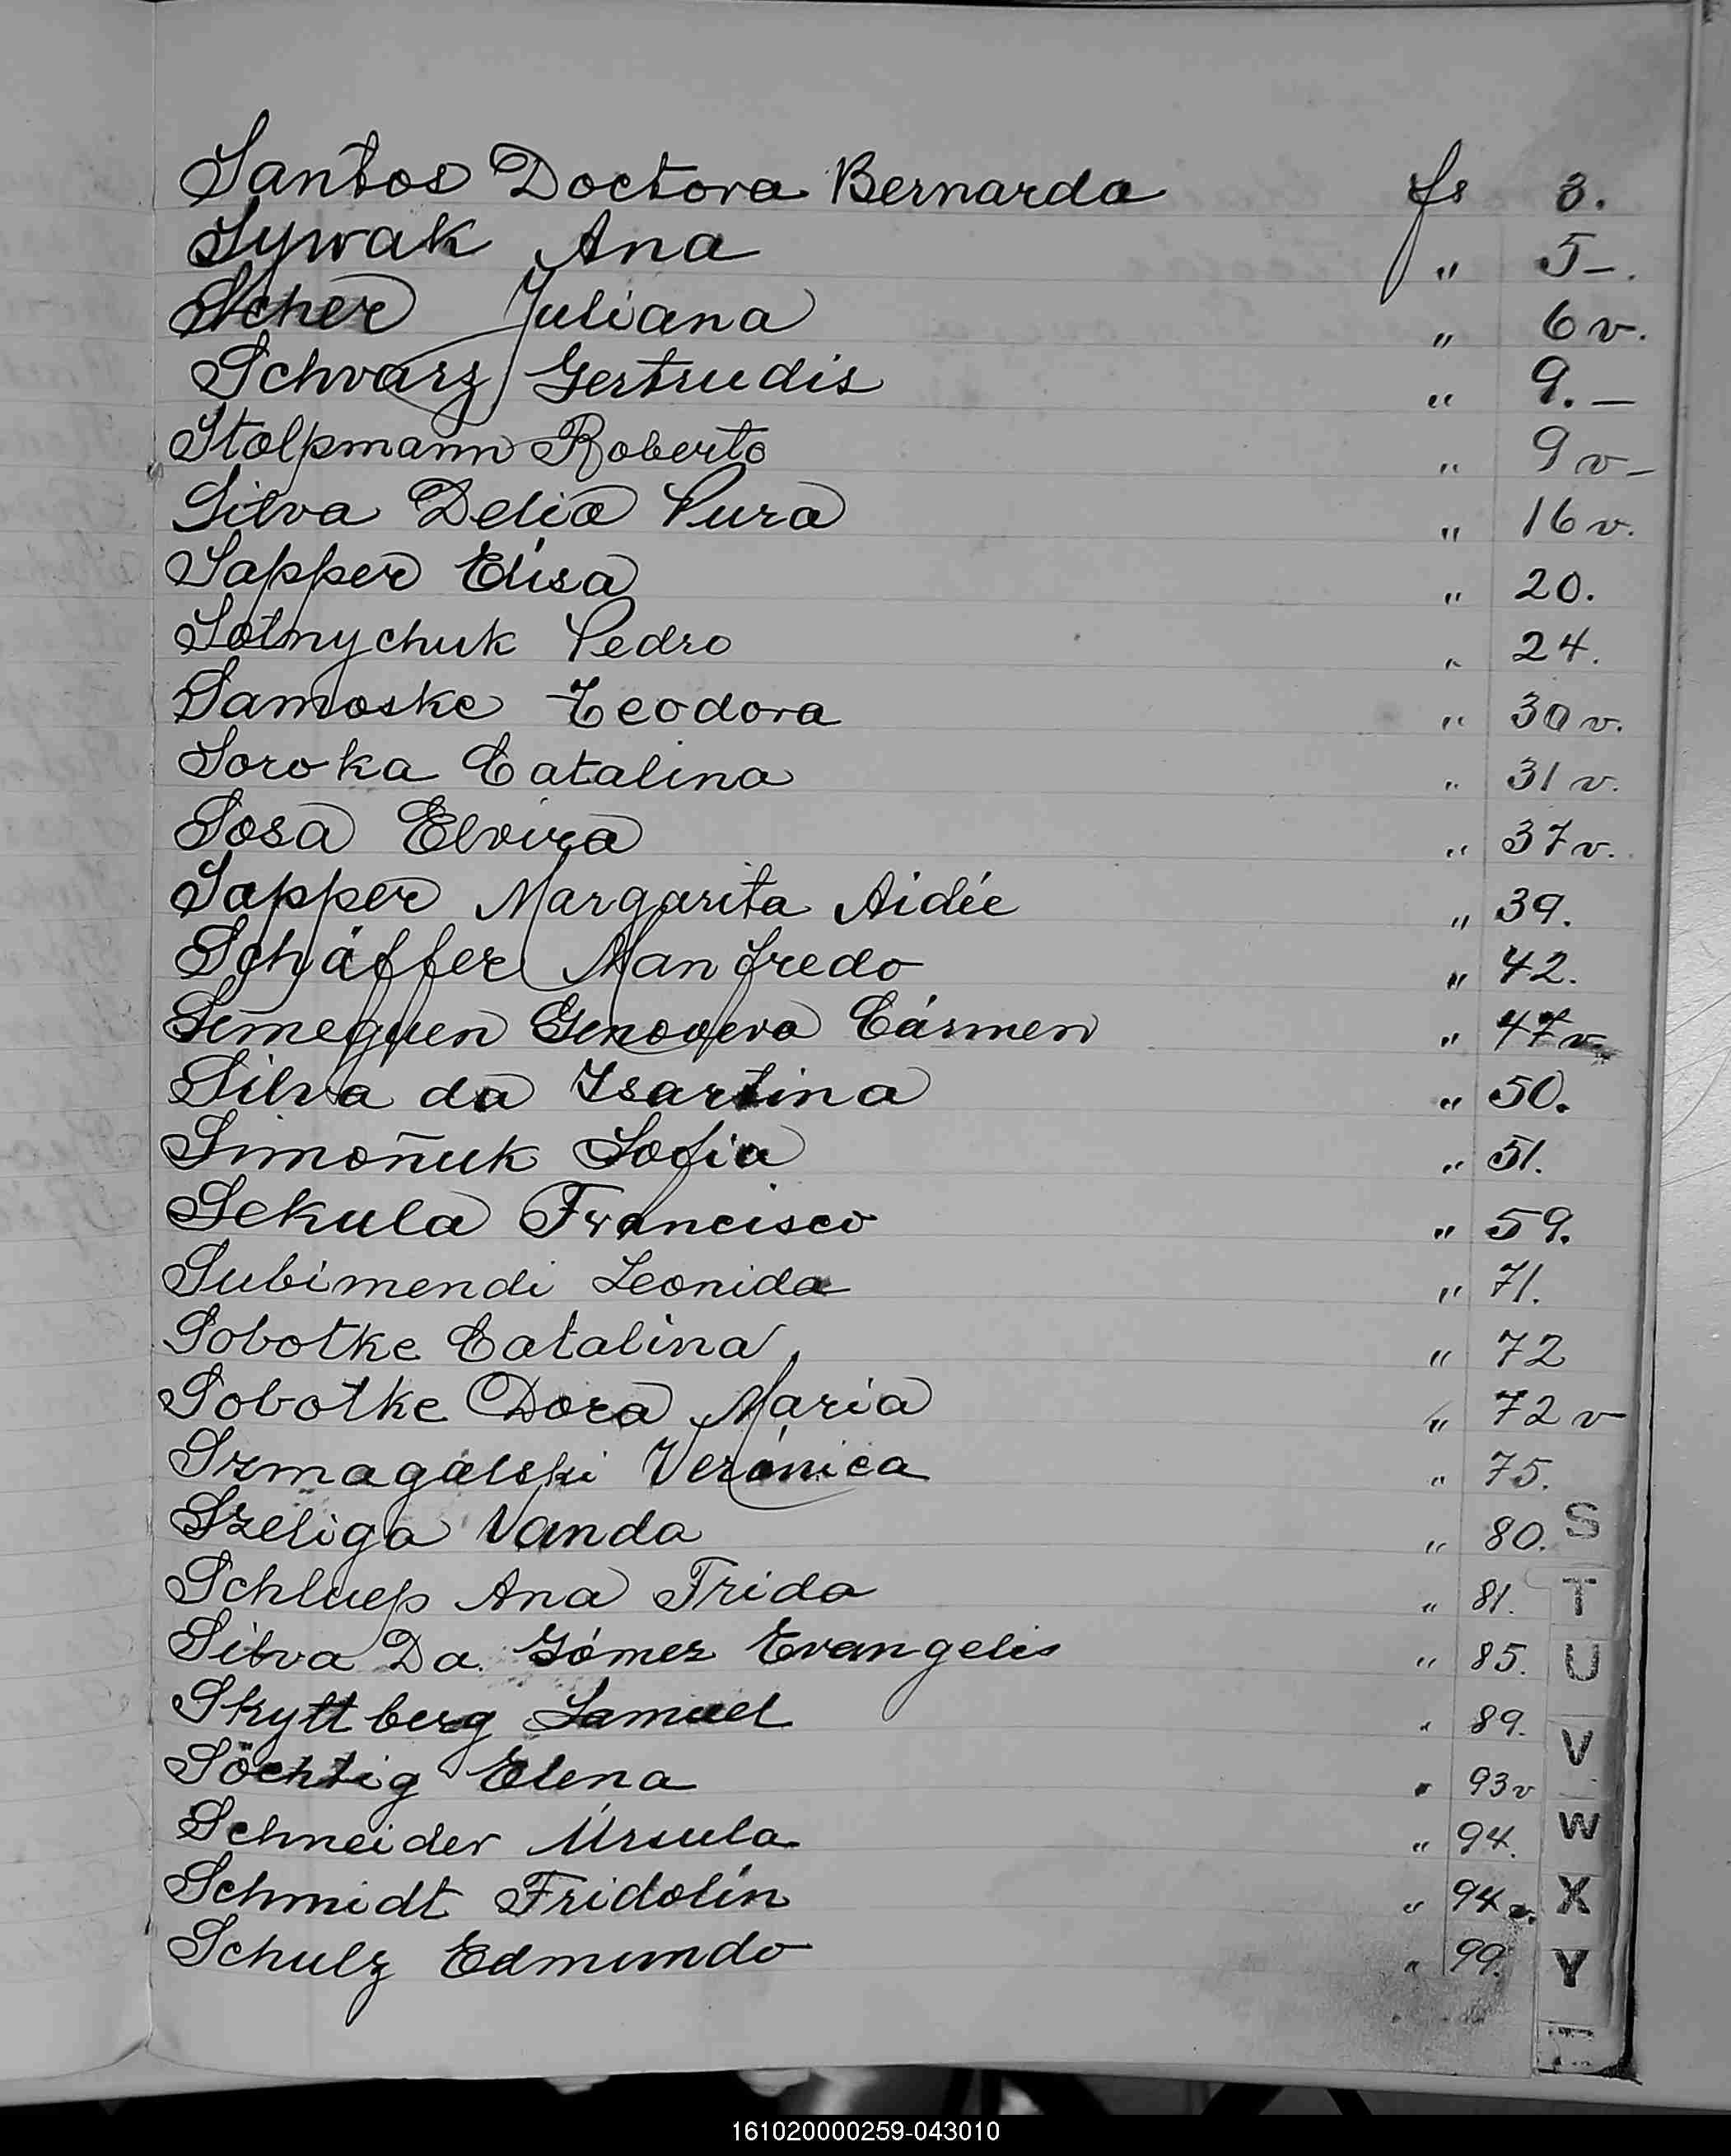 Santos Doctora Bernarda fs 3.
Sywak Ana " 5-.
Scher Juliana " 6 v.
Schvarz Gertrudis " 9.-
Stolpmann Roberto " 9 v-
Silva Delia Pura " 16 v.
Sapper Elisa " 20.
Sotnychuk Pedro " 24.
Samoske Teodora " 30 v.
Soroka Catalina " 31 v.
Sosa Elvira " 37 v.
Sapper Margarita Aidée " 39.
Schäffer Manfredo " 42.
Semeguen Genoveva Cármen " 47 v.
Silva da Isartina " 50.
Simoñuk Sofia " 51.
Sekula Francisco " 59.
Subimendi Leonida " 71.
Sobotke Catalina " 72
Sobotke Dora Maria " 72 v
Szmagalski Verónica " 75.
Szeliga Vanda " 80.
Schluep Ana Frida " 81.
Silva Da Gómez Evangelis " 85.
Skyttberg Samuel " 89.
Söchtig Elena " 93 v
Schneider Úrsula " 94.
Schmidt Fridolín " 94 v.
Schulz Edmundo " 99.
S
T
U
V
W
X
Y
161020000259-043010